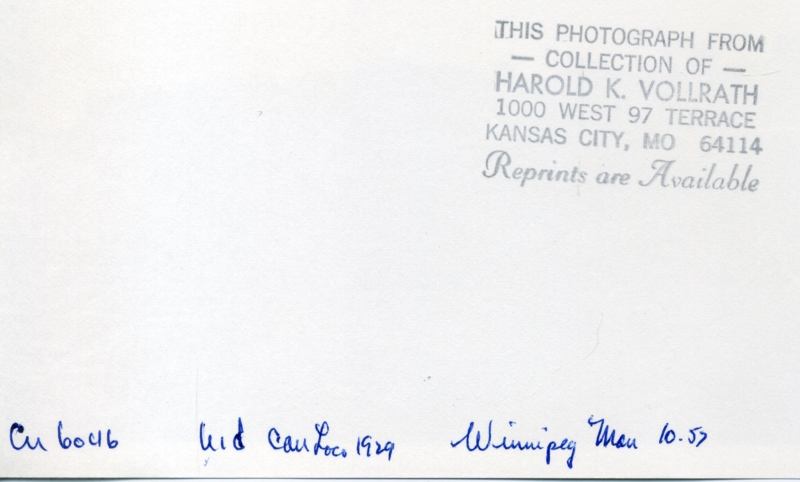 THIS PHOTOGRAPH FROM
— COLLECTION OF —
HAROLD K. VOLLRATH
1000 WEST 97 TERRACE
KANSAS CITY, MO 64114
Reprints are Available
Cn 6046 U1d Can Loco 1929 Winnipeg Man 10-57